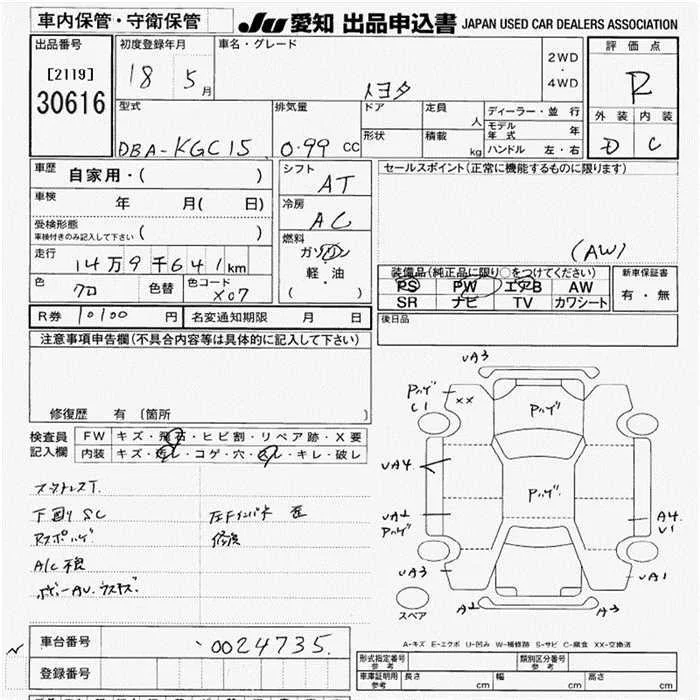 車内保管・守衛保管
JU 愛知 出品申込書 JAPAN USED CAR DEALERS ASSOCIATION
出品番号
[2119]
30616
初度登録年月
18 5月
車名・グレード
トヨタ
2WD
・
4WD
評価点
R
外装 内装
D C
型式
DBA-KGC15
排気量
0.99 CC
ドア
定員
人
形状
積載
kg
ディーラー・並行
モデル年式 年
ハンドル 左・右
車歴 自家用・( )
車検 年 月( 日)
受検形態
車検付きのみ記入して下さい ( )
走行 14万9千641km
色 クロ 色替 色コード X07
シフト
AT
冷房
AC
燃料
ガソリン
軽・油
( )
セールスポイント(正常に機能するものに限ります)
(AW)
装備品(純正品に限り○をつけてください)
PS PW エアB AW
SR ナビ TV カワシート
新車保証書
有・無
R券 10100 円 名変通知期限 月 日
後日品
注意事項申告欄(不具合内容等は具体的に記入して下さい)
修復歴 有 (箇所 )
検査員
記入欄
FW キズ・飛石・ヒビ割・リペア跡・X要
内装 キズ・汚レ・コゲ・穴・スレ・キレ・破レ
下回りSC
A/C不良
左Fインパネ 歪
修復
UA3
Pハゲ
C1
XX
Pハゲ
UA4
Pハゲ
UA2
Pハゲ
A4
U1
UA3
UA1
A2
A3
スペア
A-キズ E-エクボ U-凹み W-補修跡 S-サビ C-腐食 XX-交換済
車台番号 0024735.
登録番号
形式指定番号
参考
類別区分番号
参考
車庫証明用
参考
長さ cm 幅 cm 高さ cm